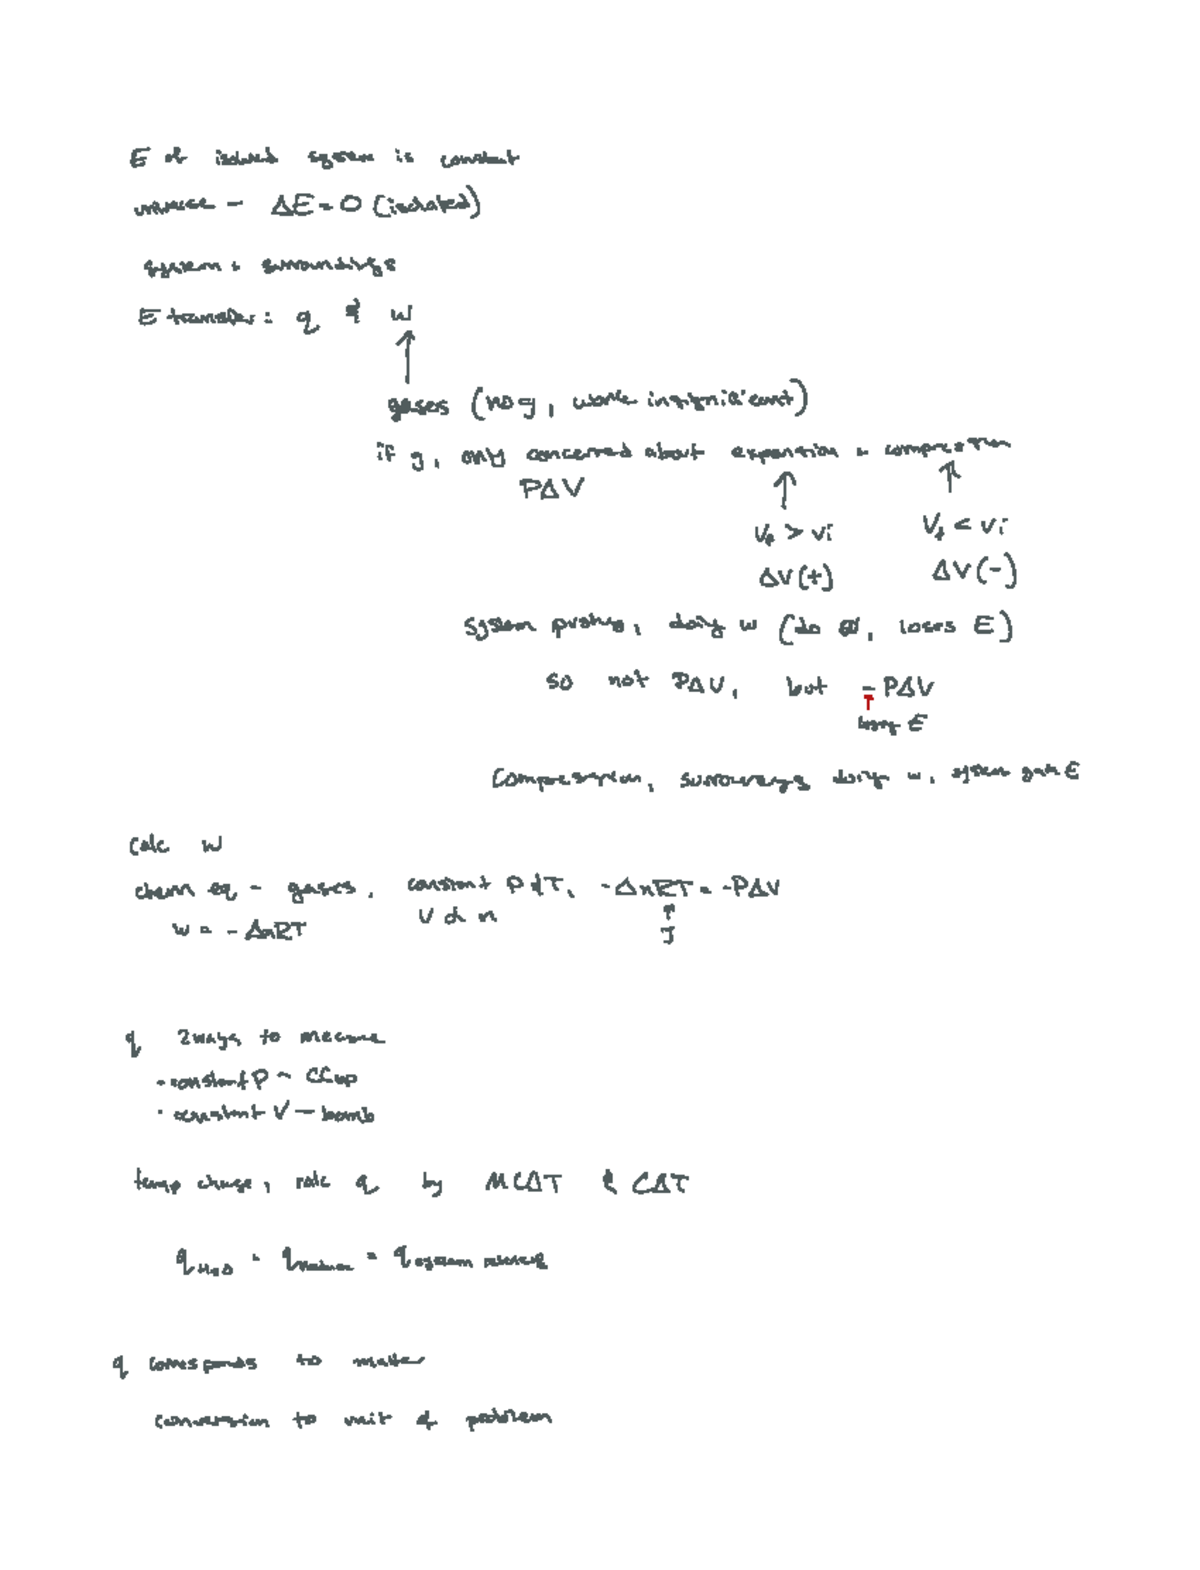 E of isolated system is constant
universe - ΔE = 0 (isolated)
system + surroundings
E transfer: q & w
gases (no g, work insignificant)
if g, only concerned about expansion & compression
PΔV
Vf > Vi
Vf < Vi
ΔV (+)
ΔV (-)
System pushing, doing w (do w, loses E)
so not PΔV, but - PΔV
losing E
Compression, surroundings doing w, system gain E
calc w
chem eq - gases, constant P & T, -ΔnRT = -PΔV
w = - ΔnRT
V α n
J
q 2 ways to measure
- constant P - CCup
· constant V - bomb
temp change, calc q by MCΔT & CΔT
qH2O = =
q corresponds to matter
conversion to unit of problem